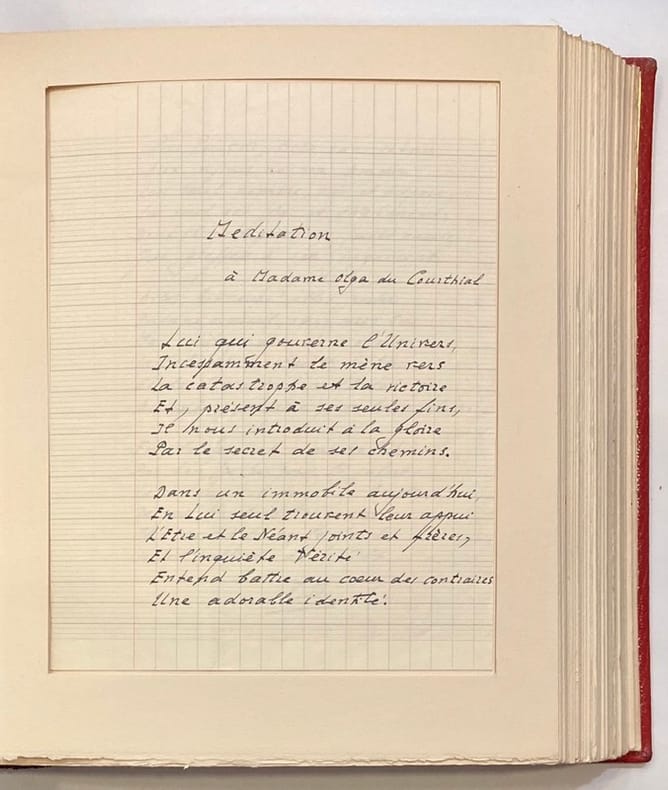 Meditation
à Madame Olga du Courthial
Lui qui gouverne l'Univers,
Incessamment le mène vers
La catastrophe et la victoire
Et, présent à ses seules fins,
Il nous introduit à la gloire
Par le secret de ses chemins.
Dans un immobile aujourd'hui,
En Lui seul trouvent leur appui
L'Etre et le Néant joints et frères,
Et l'inquiète Vérité
Entend battre au coeur des contraires
Une adorable identité.